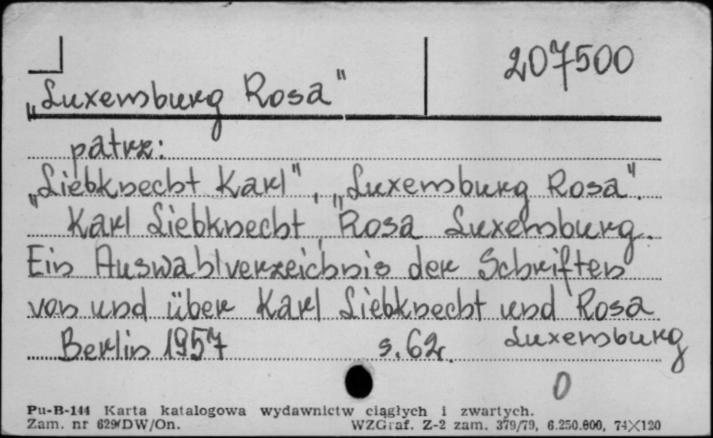 207500
„Luxemburg Rosa"
patrz:
„Liebknecht Karl", „Luxemburg Rosa".
Karl Liebknecht, Rosa Luxemburg.
Ein Auswahlverzeichnis der Schriften
von und über Karl Liebknecht und Rosa
Luxemburg
Berlin 1957 s. 62.
0
Pu-B-144 Karta katalogowa wydawnictw ciągłych i zwartych.
Zam. nr 629/DW/On. WZGraf. Z-2 zam. 379/79, 6.250.000, 74×120